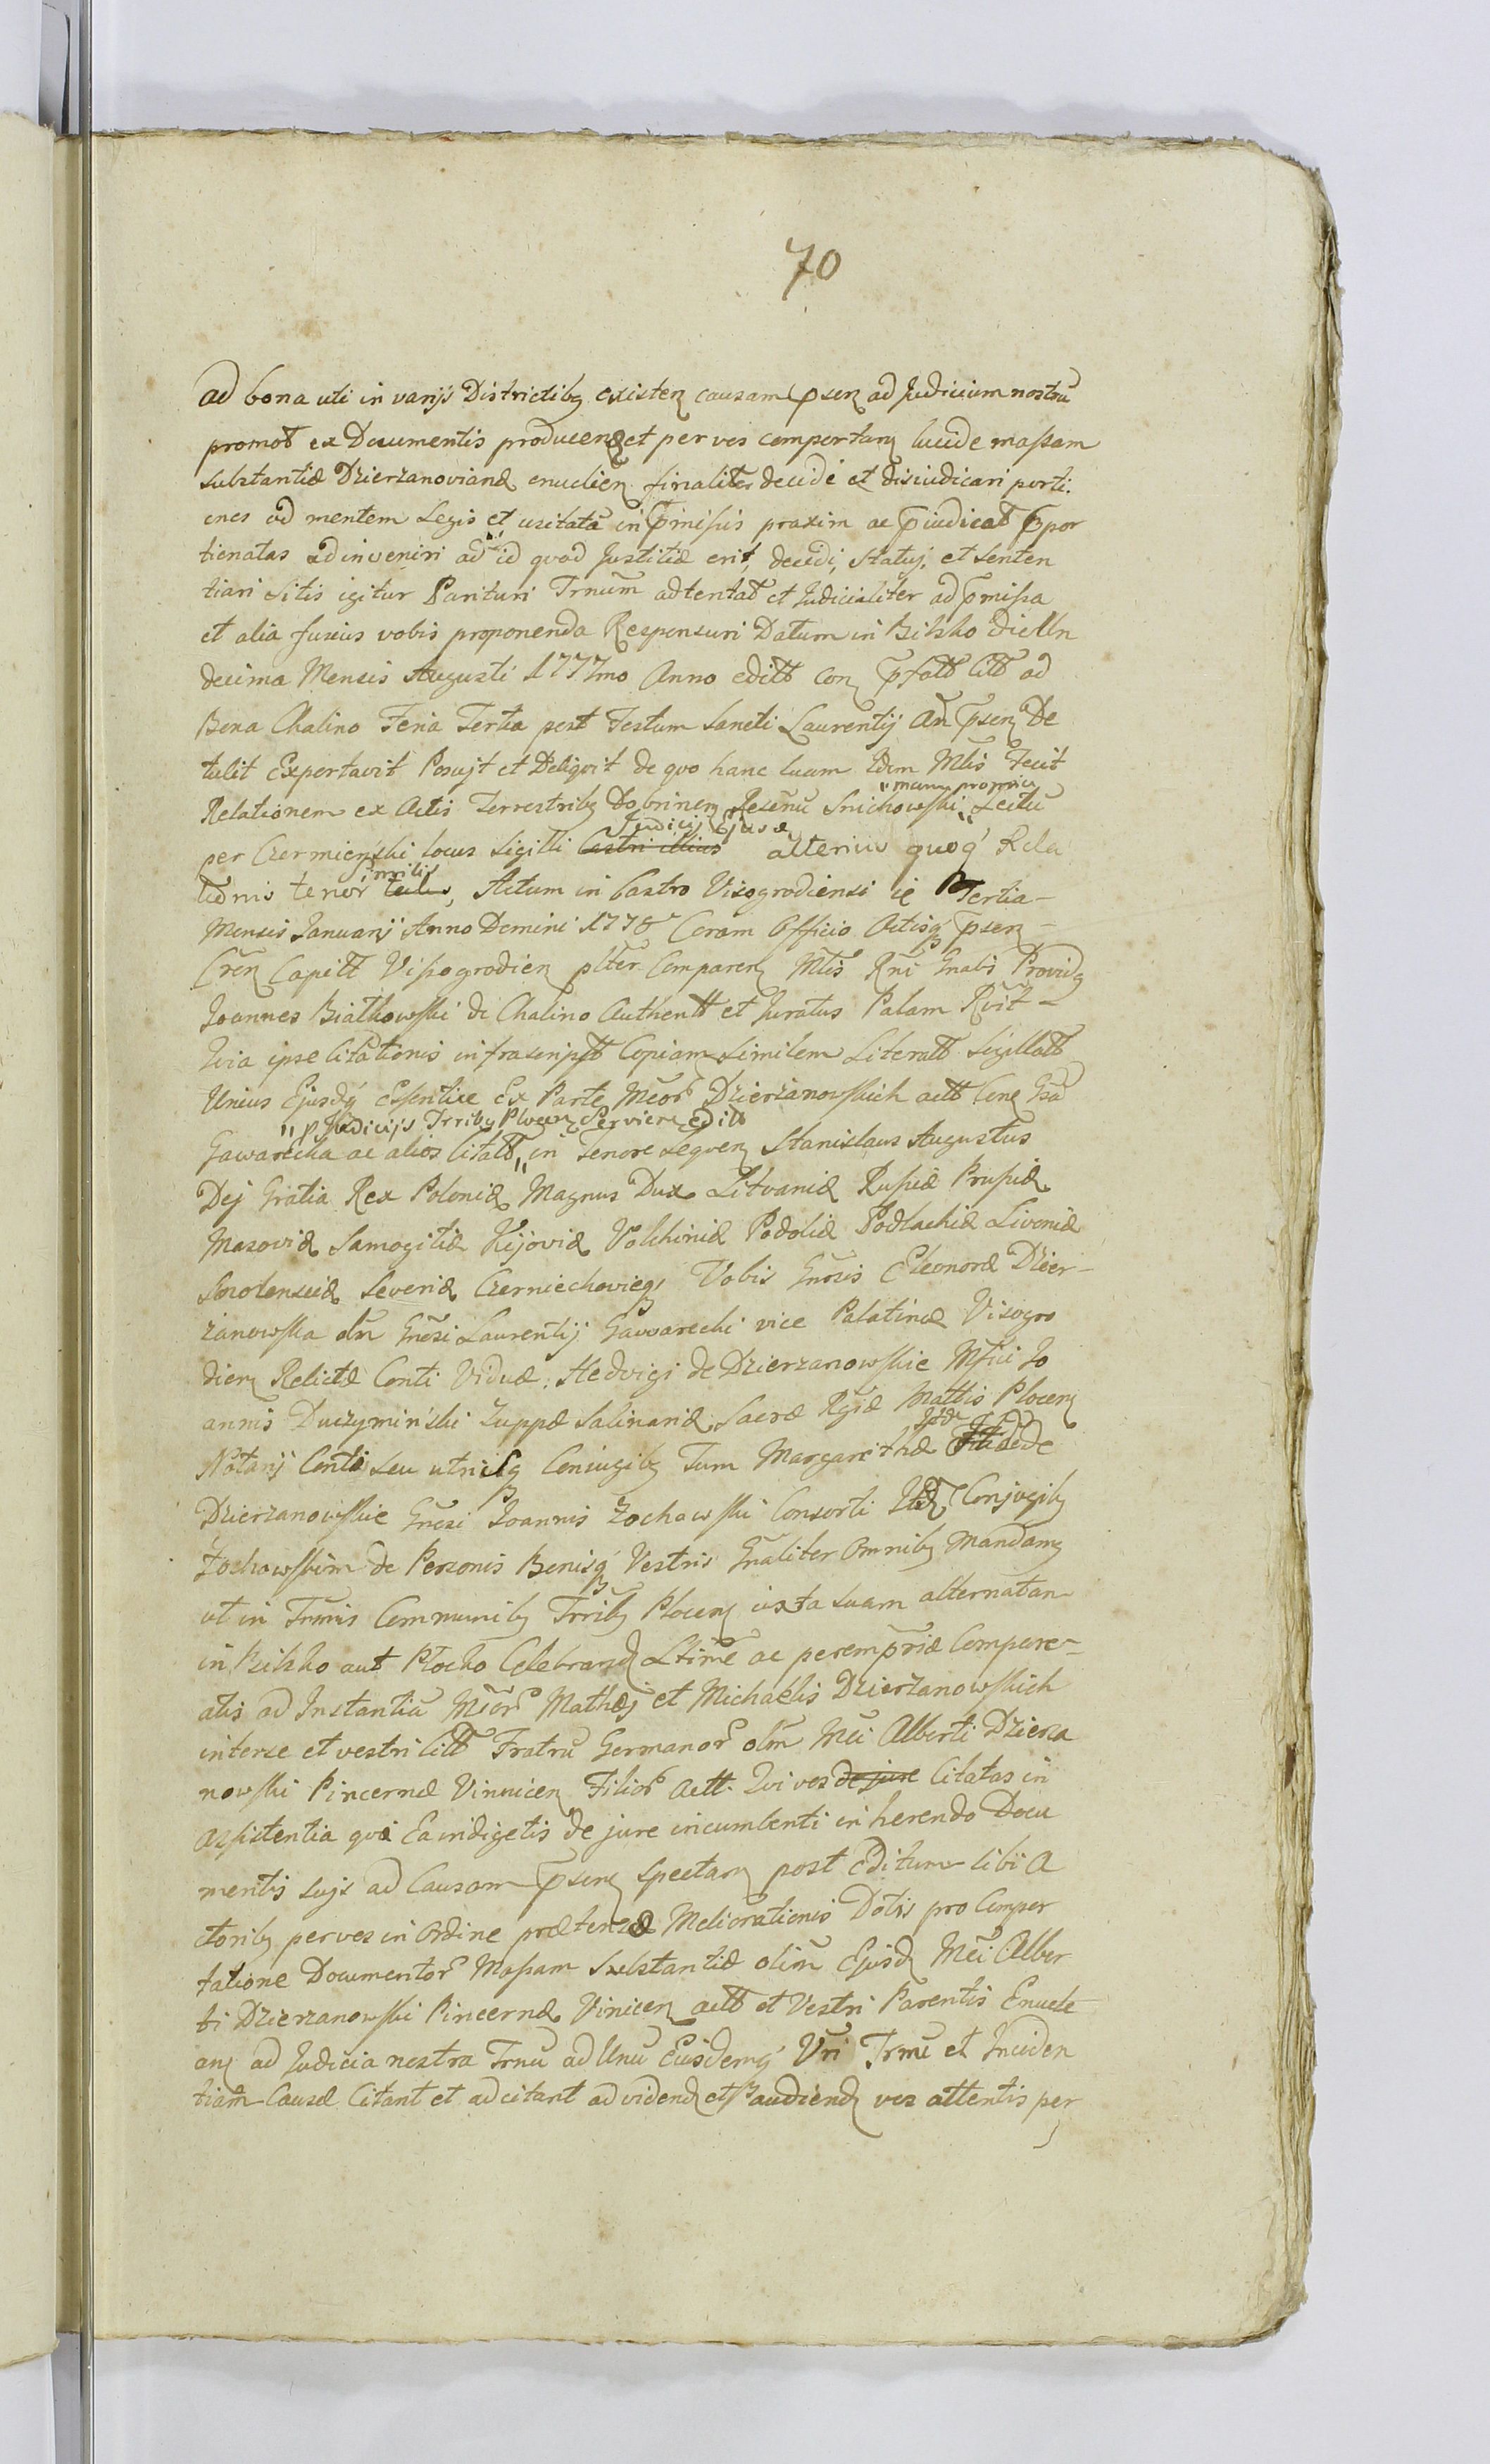 70
ad bona uti in varijs Districtibq existen causam psen ad Judicium nostrũ
promot ex Documentis producen et per vos comportan lucide massam
substantiæ Dzierzanovianæ enuclien finaliter decidi et disiudicari porti
ones ad mentem Legis et usitatã in pmissis praxim ac pjudicat ppor
tionatas adinveniri ad id quod Justitiæ erit, decidi, statuj, et senten
tiari Sitis igitur Parituri Trnum adtentat et Judicialiter ad pmissa
et alia fusius vobis proponenda Responsuri Datum in Bilsko die Un
decima Mensis Augusti 1777mo Anno editt Con pfatt Citt ad
Bona Chalino Feria Tertia post Festum Sancti Laurentij An psen De
tulit Exportavit Posujt et Deliqvit de qvo hanc suam Idem Mlis Fecit
Relationem ex Actis Terrestribq Dobrinen Resenũ Snichowski "manu propria" Lectũ
per Czermienski locus Sigilli Castri illius Judicij Ejusd alterius quoq Rela
tionis tenor talis similis, Actum in Castro Visogrodiensi ie Tertia-
Mensis Januarij Anno Domini 1778 Coram Officio Actisq psen-
Cren Capitt Vissogrodien plter Comparen Mlis Rni Gnalis Providq
Joannes Białkowski de Chalino Authentt et Juratus Palam Rvit-
Qvia ipse Citationis infrascriptt Copiam Similem Literatt Sigillatt
Unius Ejusdq Essentiæ Ex Parte Mcor Dzierzanowskich actt Cone Gsã
"p Judicijs Trribq Plocen Servien editt
Gawarecka ac alios Citatt" in Tenore Seqven Stanislaus Augustus
Dej Gratia Rex Poloniæ Magnus Dux Litvaniæ Russiæ Prussiæ
Masoviæ Samogitiæ Kijoviæ Volhiniæ Podoliæ Podlachiæ Livoniæ
Smolensciæ Severiæ Czerniechovieq Vobis Gnosis Eleonoræ Dzier-
zanowska olm Gnosi Laurentij Gawarecki vice Palatinæ Visogro
dien Relictæ Conti Viduæ. Hedvigi de Dzierzanowskie Mfici Jo
annis Duczyminski Zuppæ Salinariæ Sacræ Rgiæ Mattis Plocen
Notarij Conti seu utriusq Coniugibq Tum Margarithæ Itide de
Dzierzanowskie Gnosi Joannis Zochowski Consorti Itd Conjugibq
Zochowskim de Personis Bonisq Vestris Gnaliter Omnibq Mandamq
ut in Trmis Communibq Trribq Plocen iuxta suam alternatan
in Bilsko aut Płocko Celebrand Ltime ac peremptorie Compare-
atis ad Instantiã Mcor Mathej et Michaelis Dzierzanowskich
inter se et vestri Citt Fratrũ Germanor olm Mci Alberti Dzierza
nowski Pincernæ Vinnicen Filior Actt. Qui vos de jure Citatas in
assistentia qva Ea indigetis de jure incumbenti in herendo Docu
mentis Sujs ad Causam psen Spectan post Editum sibi a
ctoribq per vos in Ordine prætensæ Meliorationis Dotis pro Compor
tatione Documentor Massam Substantiæ olim Ejusd Mci Alber
ti Dzierzanowski Pincernæ Vinicen actt et Vestri Parentis Enucle
anq ad Judicia nostra Trnũ ad Unũ Eiusdemq Vri Trmi et Inciden
tiam Causæ Citant et adcitant ad vidend et audiend vos attentis per